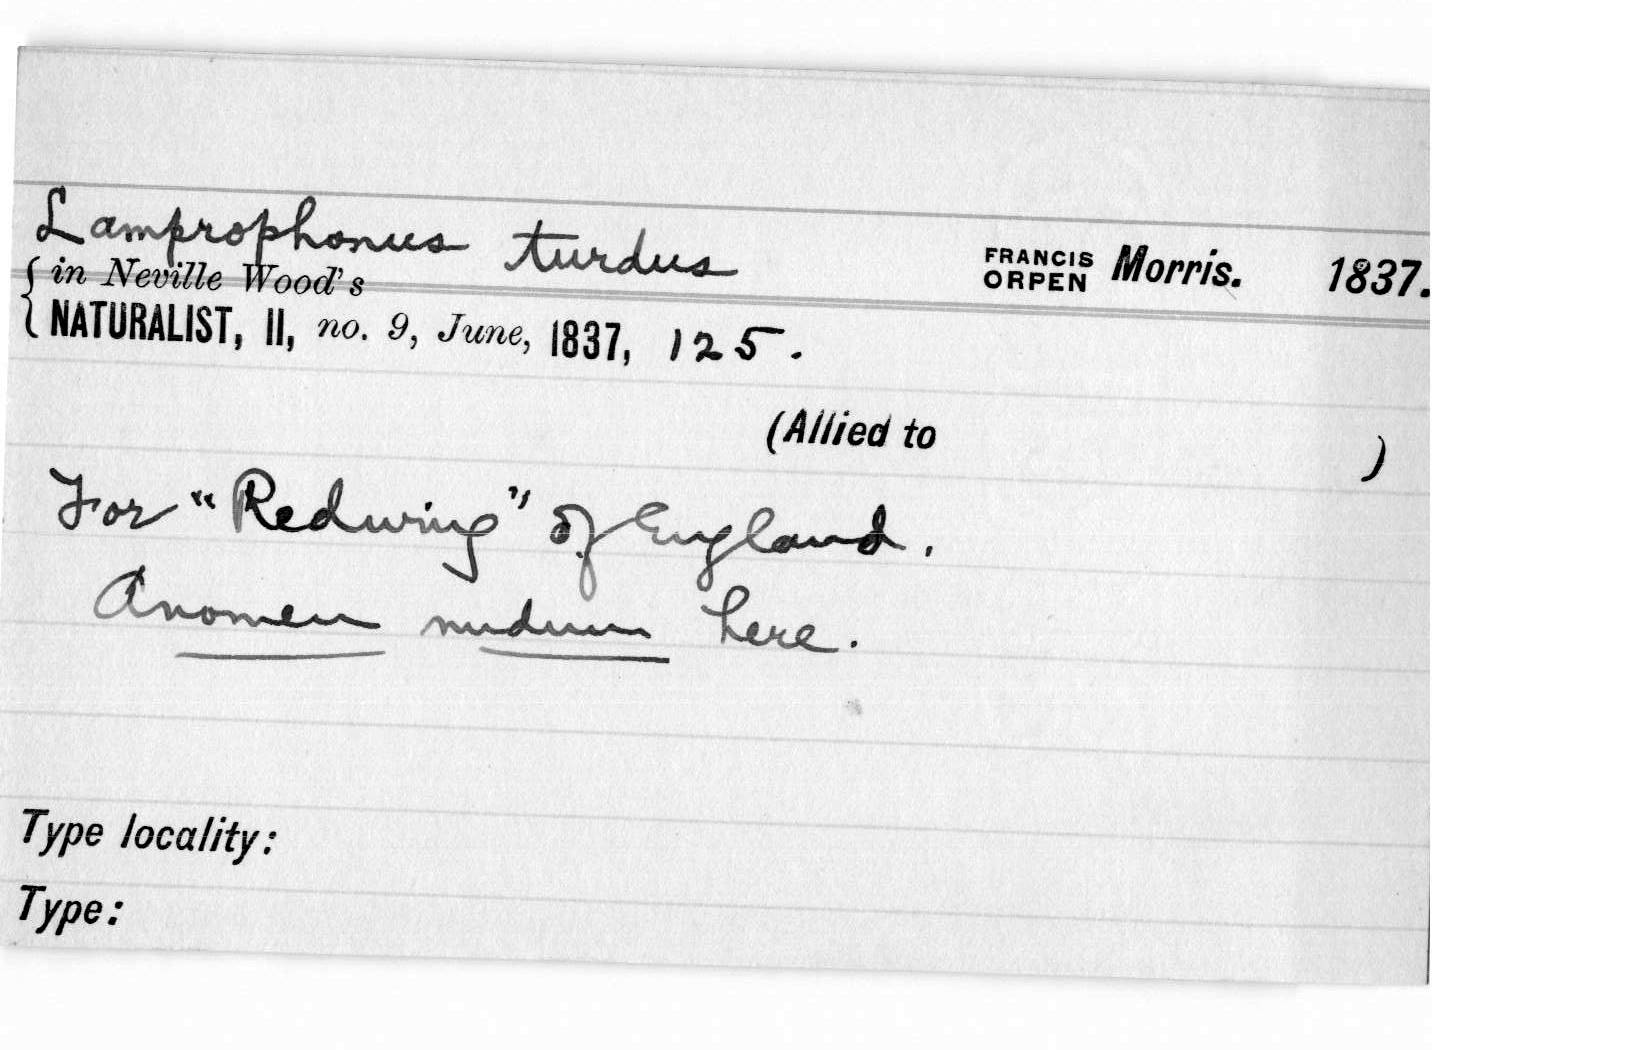 Lamprophonus turdus FRANCIS ORPEN Morris. 1837.
{ in Neville Wood's
NATURALIST, II, no. 9, June, 1837, 125.
(Allied to )
For "Redwing" of England.
A nomen nudum here.
Type locality:
Type: